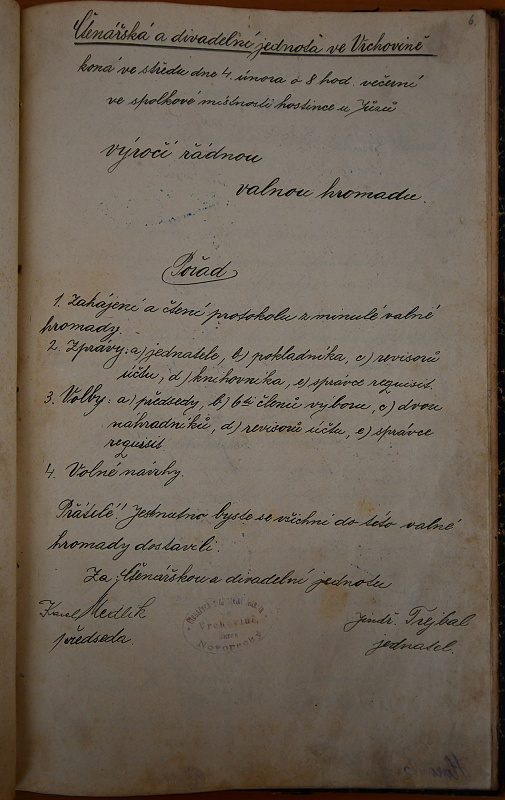 6.
Čtenářská a divadelní jednota ve Vrchovině
koná ve středu dne 4. února o 8 hod. večerní
ve spolkové místnosti hostince u
výročí řádnou
valnou hromadu.
Pořad
1. Zahájení a čtení protokolu z minulé valné
hromady.
2. Zprávy: a) jednatele, b) pokladníka, c) revisorů
účtu, d) knihovníka, e) správce requisit.
3. Volby: a) předsedy, b) 6ti členů výboru, c) dvou
náhradníků, d) revisorů účtu, e) správce
requisit
4. Volné návrhy.
Přátelé" jestnutno byste se všichni do této valné
hromady dostavili.
Za Čtenářskou a divadelní jednotu
Karel Medlík
předseda.
Jindř. Třejbal
jednatel.
Vrchovině
Novopacký